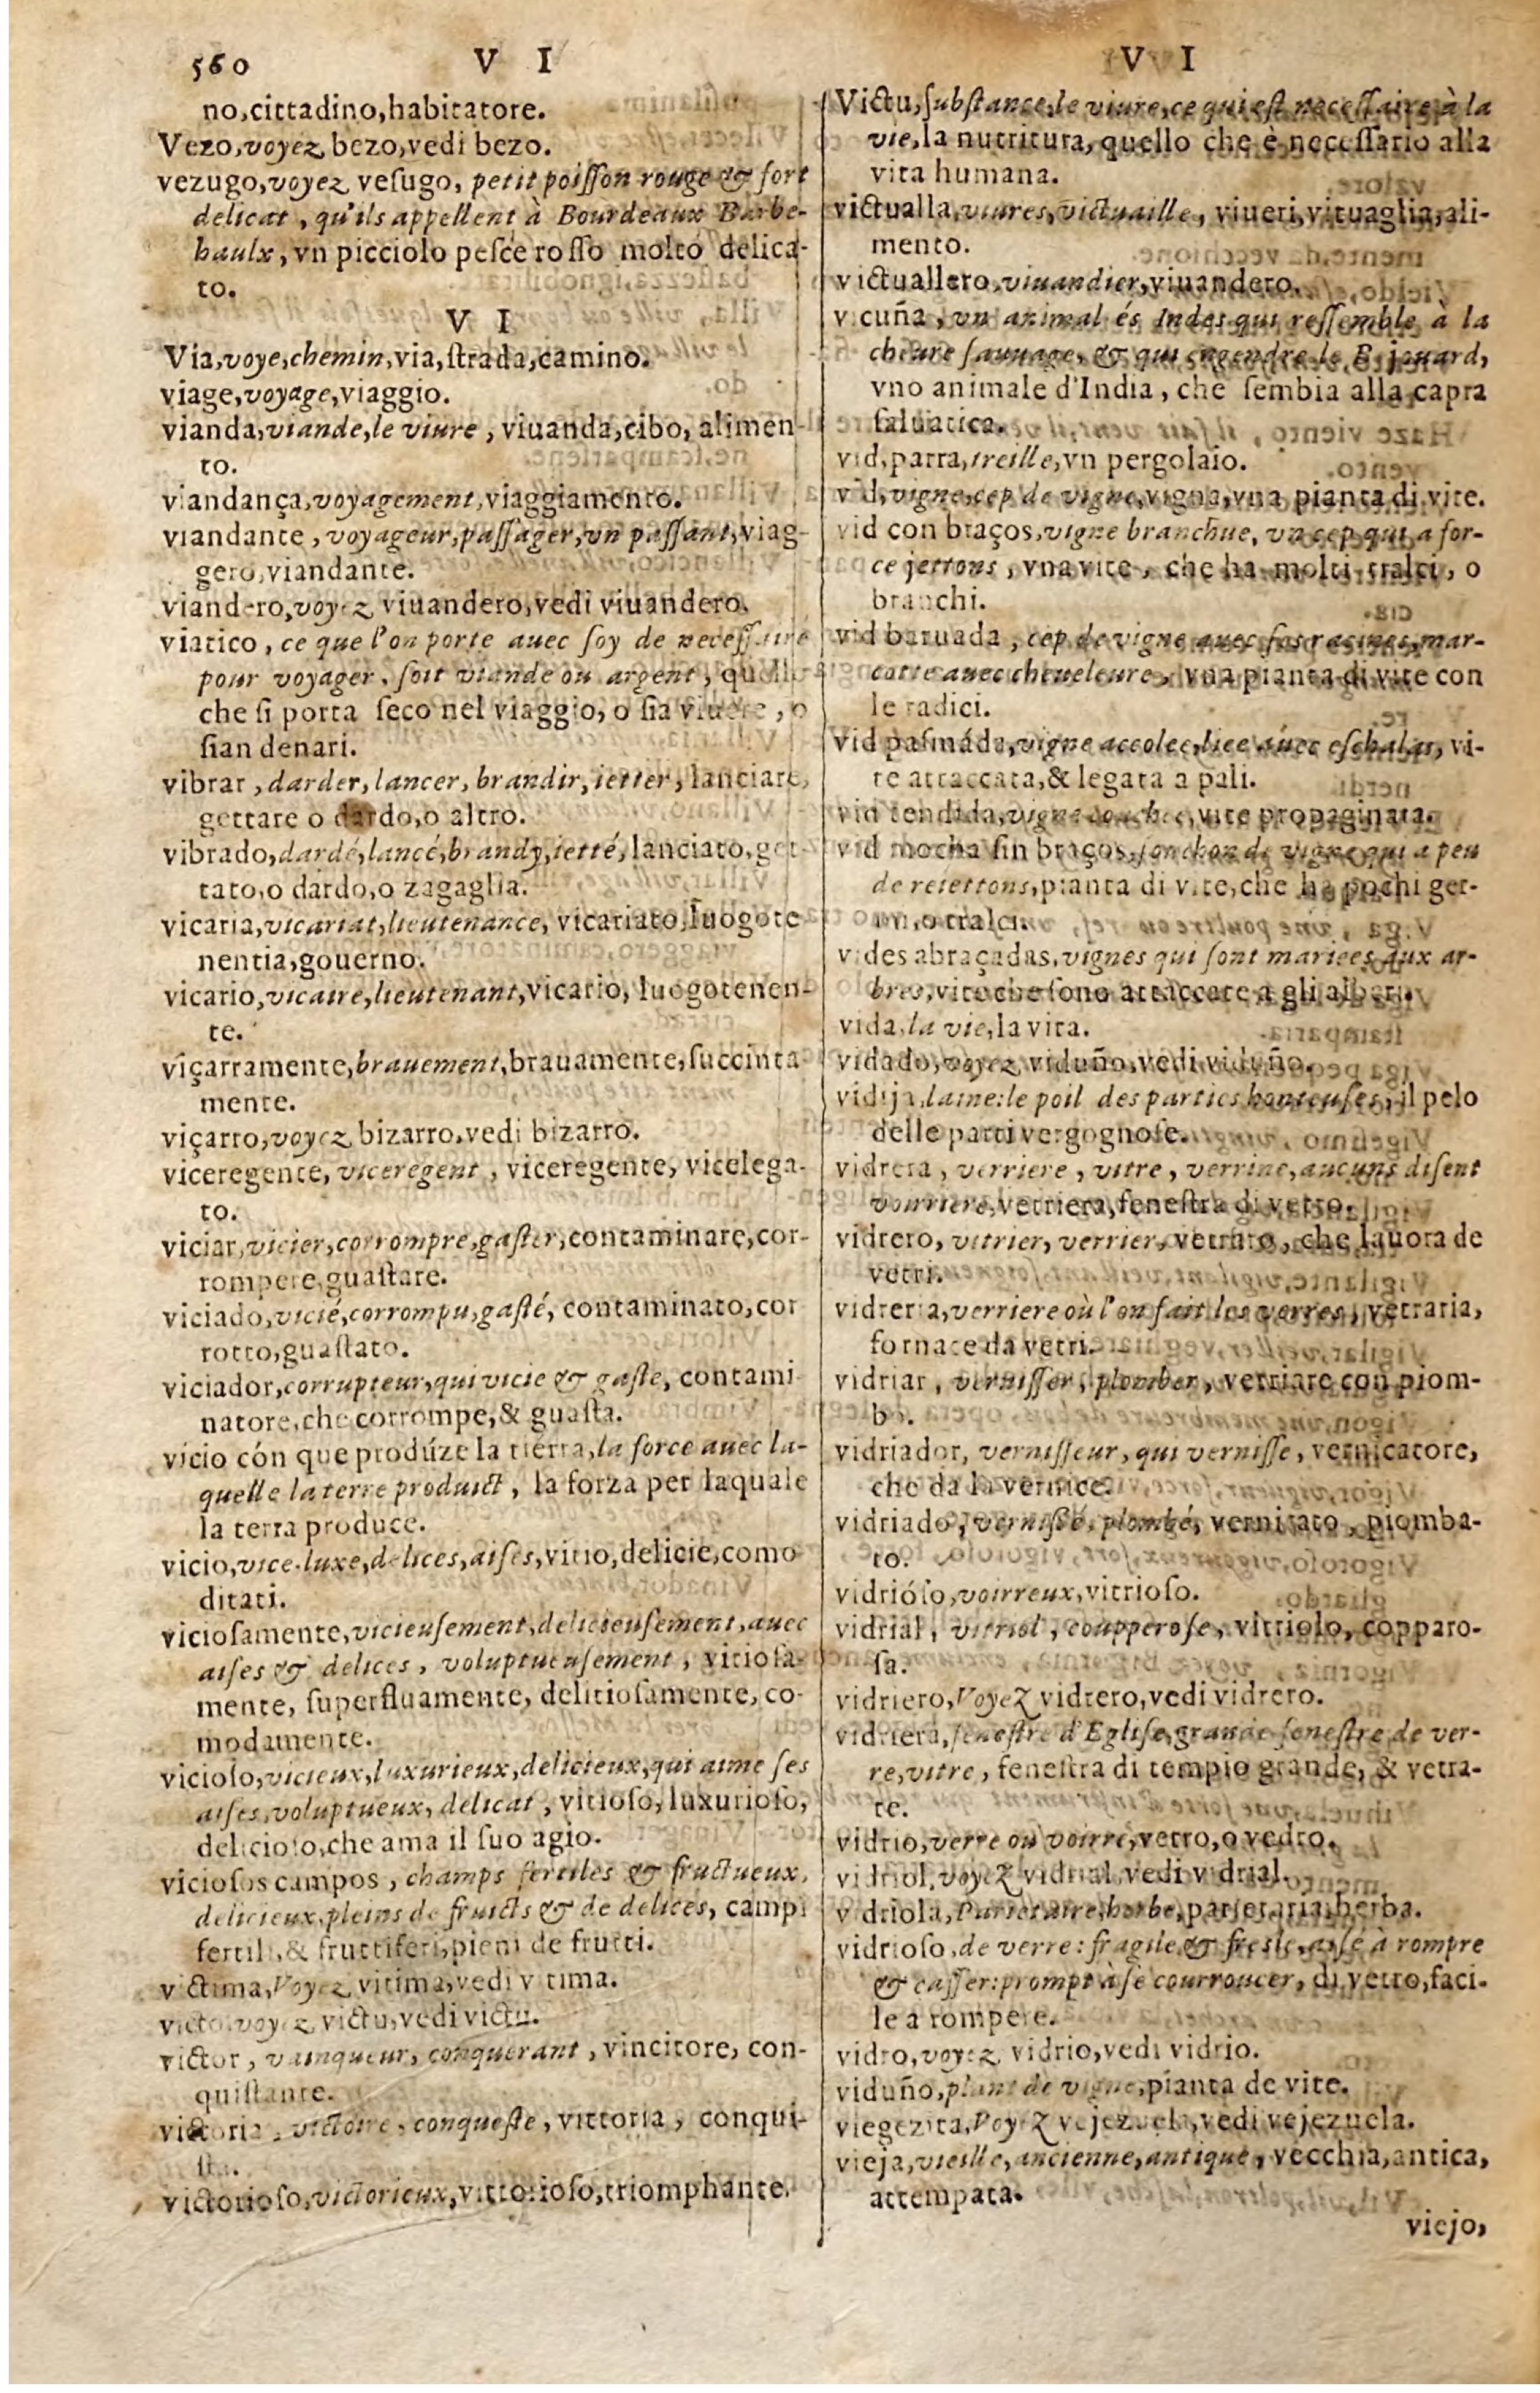 560 V I
no,cittadino,habitatore.
Vezo,voyez bezo,vedi bezo.
vezugo,voyez veſugo, petit poiſſon rouge & fort
delicat, qu'ils appellent à Bourdeaux Barbe-
haulx, vn picciolo peſce roſſo molto delica-
to.
V I
Via,voye,chemin,via,ſtrada,camino.
viage,voyage,viaggio.
vianda,viande,le viure, viuanda,cibo, alimen-
to.
viandança,voyagement,viaggiamento.
viandante, voyageur,paſſager,vn paſſant,viag-
gero,viandante.
viandero,voyez viuandero,vedi viuandero.
viatico, ce que l'on porte auec ſoy de neceſſaire
pour voyager, ſoit viande ou argent, quello
che ſi porta ſeco nel viaggio, o ſia viuere, o
ſian denari.
vibrar, darder, lancer, brandir, ietter, lanciare,
gettare o dardo,o altro.
vibrado,dardé,lancé,brandy,ietté, lanciato,get-
tato,o dardo,o zagaglia.
vicaria,vicariat,lieutenance, vicariato,luogote
nentia,gouerno.
vicario,vicaire,lieutenant,vicario, luogotenen-
te.
viçarramente,brauement,brauamente,ſuccinta
mente.
viçarro,voyez bizarro,vedi bizarro.
viceregente, viceregent, viceregente, vicelega-
to.
viciar,vicier,corrompre,gaſter,contaminare,cor-
rompere,guaſtare.
viciado,vicié,corrompu,gaſté, contaminato,cor
rotto,guaſtato.
viciador,corrupteur,qui vicie & gaſte, contami
natore,che corrompe,& guaſta.
vício cón que prodúze la tiérra,la force auec la-
quelle la terre produict, la forza per laquale
la terra produce.
vicio,vice.luxe,delices,aiſes,vitio,delicie,como
ditati.
vicioſamente,vicieuſement,delicieuſement,auec
aiſes & delices, voluptueuſement, vitioſa-
mente, ſuperfluamente, delitioſamente, co-
modamente.
vicioſo,vicieux,luxurieux,delicieux,qui aime ſes
aiſes,voluptueux, delicat, vitioſo, luxurioſo,
delicioſo,che ama il ſuo agio.
vicioſos campos, champs fertiles & fructueux,
delicieux,pleins de fruicts & de delices, campi
fertili,& fruttiferi,pieni de frutti.
victima,Voyez vitima,vedi vitima.
victo,voyez victu,vedi victu.
victor, vainqueur, conquerant, vincitore, con-
quiſtante.
victoria, victoire, conqueſte, vittoria, conqui-
ſta.
victorioſo,victorieux,vittorioſo,triomphante.
V I
Victu,ſubſtance,le viure,ce qui eſt neceſſaire à la
vie,la nutritura, quello che è neceſſario alla
vita humana.
victualla,viures,victuaille, viueri,vituaglia,ali-
mento.
victuallero,viuandier,viuandero.
vicuña, vn animal és Indes qui reſſemble à la
cheure ſauuage, & qui engendre le Bejouard,
vno animale d'India, che ſembia alla capra
ſaluatica.
vid,parra,treille,vn pergolaio.
vid,vigne,cep de vigne,vigna,vna pianta di vite.
vid con braços,vigne branchue, vn cep qui a for-
ce jettons, vna vite, che ha molti tralci, o
branchi.
vid baruada, cep de vigne auec ſes racines,mar-
cotte auec cheueleure, vna pianta di vite con
le radici.
vid paſmáda,vigne accolee,liee auec eſchalas, vi-
te attaccata,& legata a pali.
vid tendida,vigne couchee,vite propaginata.
vid mocha ſin braços, ſonchon de vigne qui a peu
de reiettons,pianta di vite,che ha pochi ger-
mi,o tralci.
vides abraçadas,vignes qui ſont mariees aux ar-
bres,vite che ſono attaccate a gli alberi.
vida,la vie,la vita.
vidado,voyez viduño,vedi viduño.
vidija,laine:le poil des parties honteuſes, il pelo
delle parti vergognoſe.
vidrera, verriere, vitre, verrine,aucuns diſent
voirriere,vetriera,feneſtra di vetro.
vidrero, vitrier, verrier, vetraro, che lauora de
vetri.
vidreria,verriere où l'on fait les verres, vetraria,
fornace da vetri.
vidriar, verniſſer, plomber, vetriare con piom-
bo.
vidriador, verniſſeur, qui verniſſe, vernicatore,
che da la vernice.
vidriado, verniſſé, plombé, vernicato, piomba-
to.
vidrióſo,voirreux,vitrioſo.
vidrial, vitriol, coupperoſe, vitriolo, copparo-
ſa.
vidriero,Voyez vidrero,vedi vidrero.
vidriera,feneſtre d'Egliſe,grande feneſtre de ver-
re,vitre, feneſtra di tempio grande, & vetra-
te.
vidrio,verre ou voirre,vetro,o vedro.
vidriol,voyez vidrial,vedi vidrial.
vidriola,Parietaire,herbe,parietaria,herba.
vidrioſo,de verre:fragile & freſle,aiſé à rompre
& caſſer:prompt à ſe courroucer, di vetro,faci-
le a rompere.
vidro,voyez vidrio,vedi vidrio.
viduño,plant de vigne,pianta de vite.
viegezita,Voyez vejezuela,vedi vejezuela.
vieja,vieille,ancienne,antique, vecchia,antica,
attempata.
viejo,